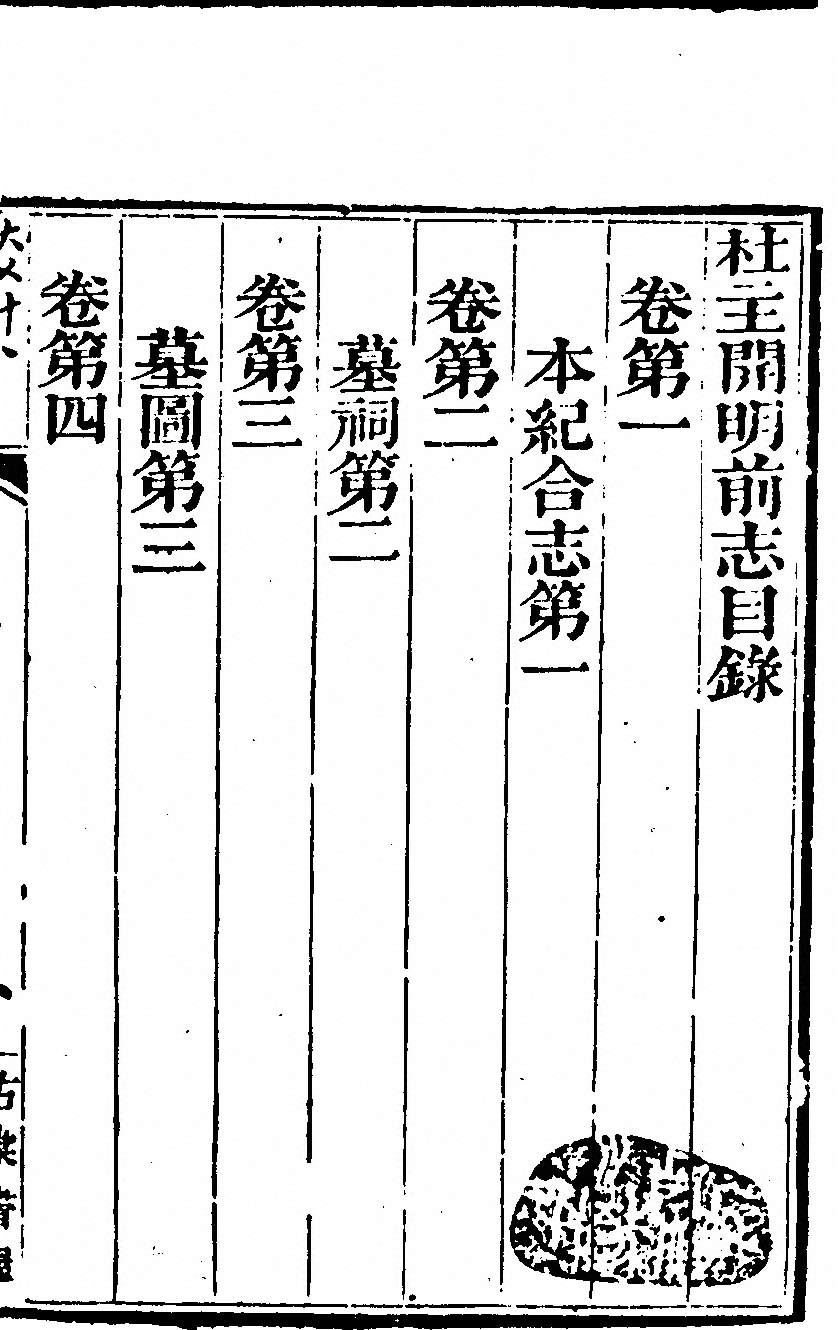 杜主開明前志目錄
卷第一
本紀合志第一
卷第二
墓祠第二
卷第三
墓圖第三
卷第四